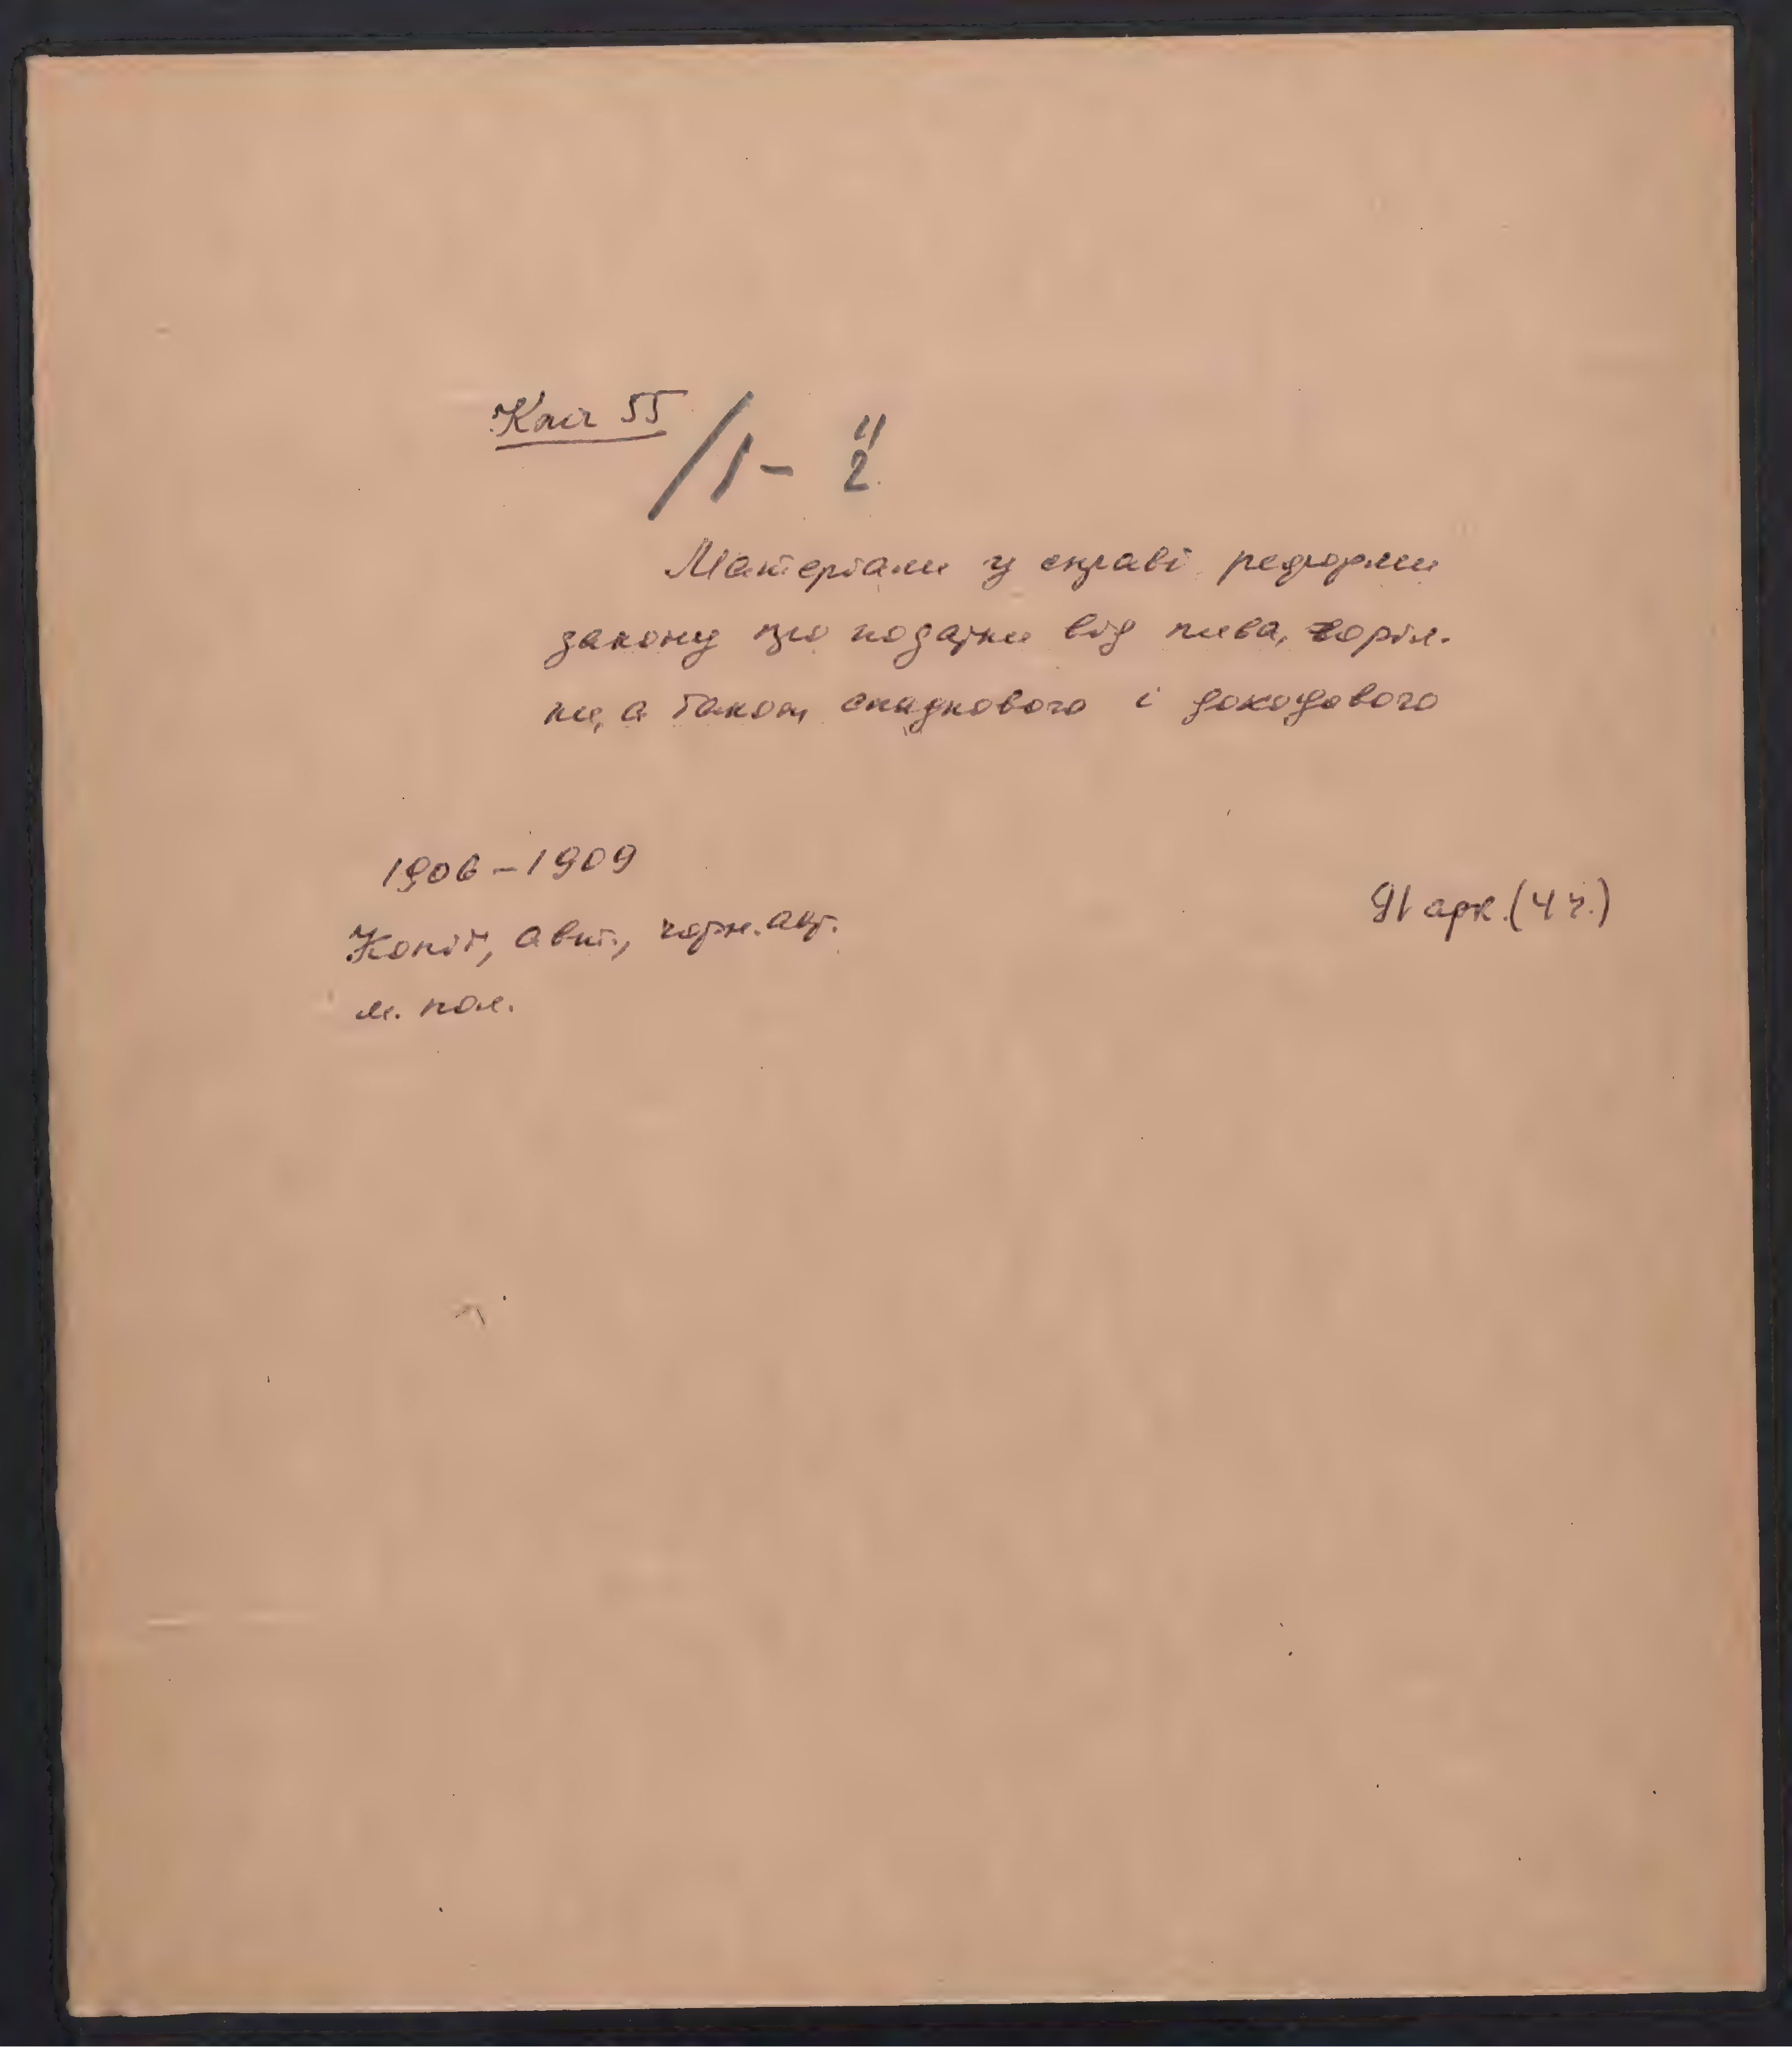 Кміт 55
/1- 4/2
Матеріали у справі реформи
закону про податки від пива, горіл-
ки, а також спадкового і доходового
1906-1909
91 арк. (4 ч.)
Копії, авт., чорн. авт.
м. пол.